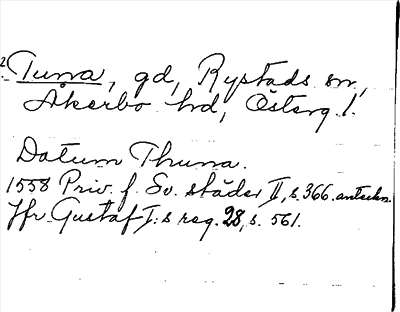 2. Tuna, gd, Rystads sn,
Åkerbo hd, Österg. l.
Datum Thuna.
1558 Priv. f. Sv. städer II, s. 366. anteckn.
Jfr Gustaf I:s reg. 28, s. 561.